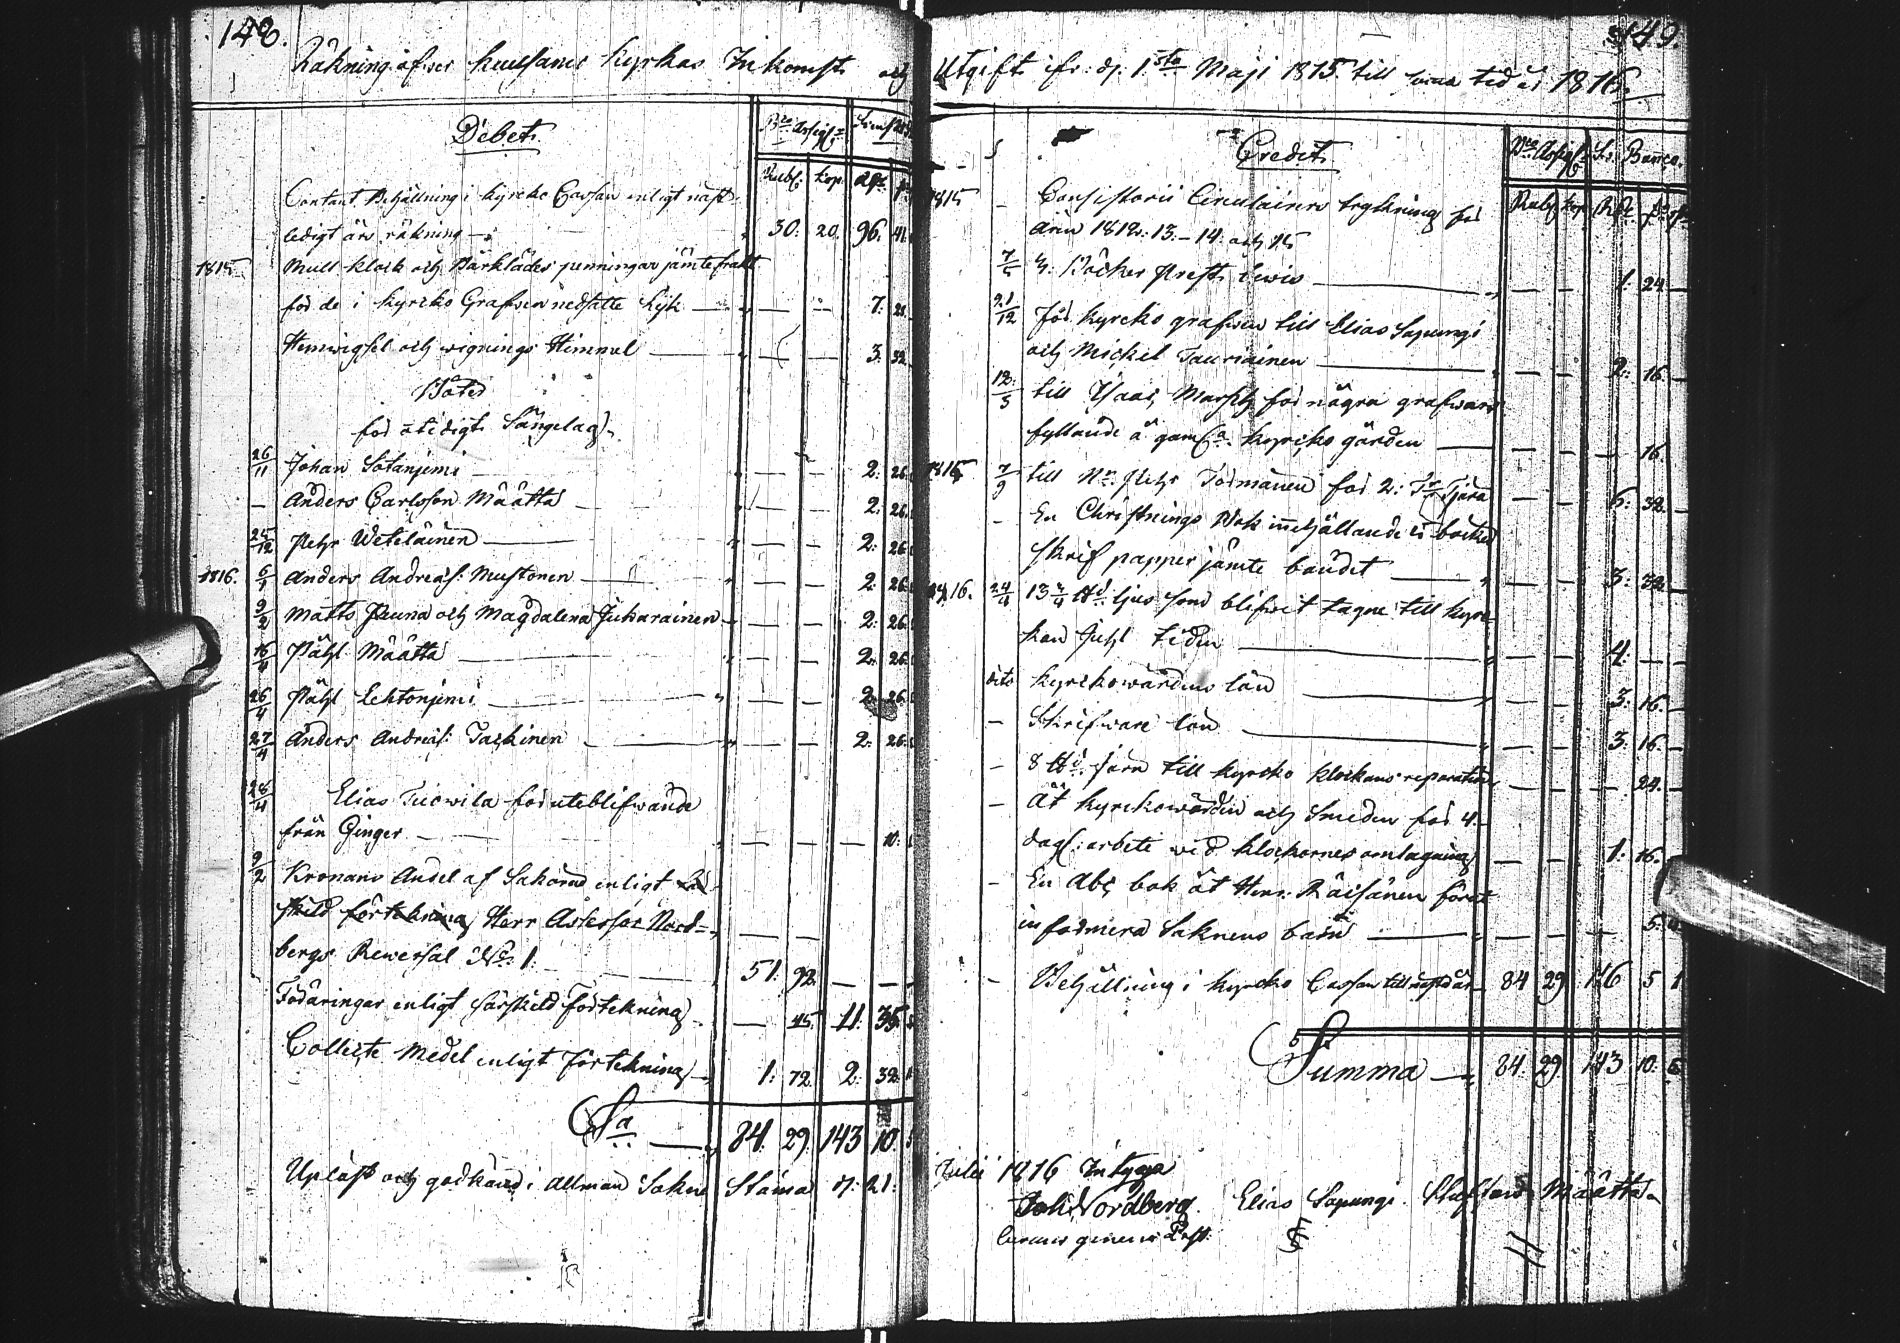 148.
Räkning öfver Kuusamo Kyrkas Inkomst och
Debet.
Bco Assign:
Rubl: kop. Rdr
Contant Behållning i Kyrcko Cassan enligt näst
ledigt års räkning 30. 20. 96. 41.
1815 Mull klock och Bårklädes penningar jämte frakt
för de i Kyrcko Grafven nedsatte Lijk 7. 21.
Hemwigsel och wignings Himmel 3. 32.
Böter
för otidigt Sängelag
26/11 Johan Sotanjemi 2. 26.
Anders Carlsson Määttä 2. 26.
25/12 Pehr Weteläinen 2. 26
1816. 6/1 Anders Andreæs: Mustonen 2: 26.
9/2 Matts Pauna och Magdalena Jukarainen 2: 26.
15/4 Påhl Määttä 2. 26.
26/4 Påhl Lehtonjemi 2. 26
27/4 Anders Andreæs: Tackinen 2: 26.
28/4 Elias Tuowila för uteblifwande
från Ginger 10.
9/2 Kronans Andel af Saköres enligt
skild förtekning Herr Assessor Nord=
bergs Rewersal No: 1. 51. 92.
Föräringar enligt särskild förtekning 45. 11. 35.
Collecte Medel enligt förtekning 1: 72. 2. 32.
Sa 84. 29. 143 10.
Upläst och godkänd i Allmän Sokne Stäma d: 21.
149.
Utgift ifr: d: 1.sta Maji 1815 till samma tid år 1816.
Credit
Bco Assign: Sv. Banco.
Rubl kop Rdr
1815 Consistorii Circulairers tryckning för
åren 1812. 13.– 14. och 15
7/5 4. Böcker Prest bewis 1. 24
21/12 för kyrcko grafwen till Elias Sapungi
och Mickel Tauriainen 2. 16.
12/5 till Isaac Marsth för några grafwars
fyllande å gamla kyrcko gården 16.
1815 7/9 till Nr. Pehr Törmänen för 2: Tr Tjära 6: 32.
En Christnings Bok innehållande 12 böcker
skrif papper jämte bandet 3: 32
1816. 24/4 13 3/4 ℔ ljus som blifwit tagne till kyrc=
kan Juhl tiden 4.
dito Kyrckowärdens lön 3. 16.
Skrifware lön 3. 16.
8 ℔ järn till kyrcko klockans reparation 24.
Åt Kyrckowärden och Smeden för 4.
dags: arbete wid klockornes omlagning 1. 16.
En Abc bok åt Herr Räisänen förat
informera Soknens barn 5. 4.
Behållning i kyrcko Cassan till nästa år 84 29. 116 5 1
Summa 84. 29. 143 10. 5
Julii 1816 Intyga
Joh: Nordberg. Elias Sapungi Staffan Määttä